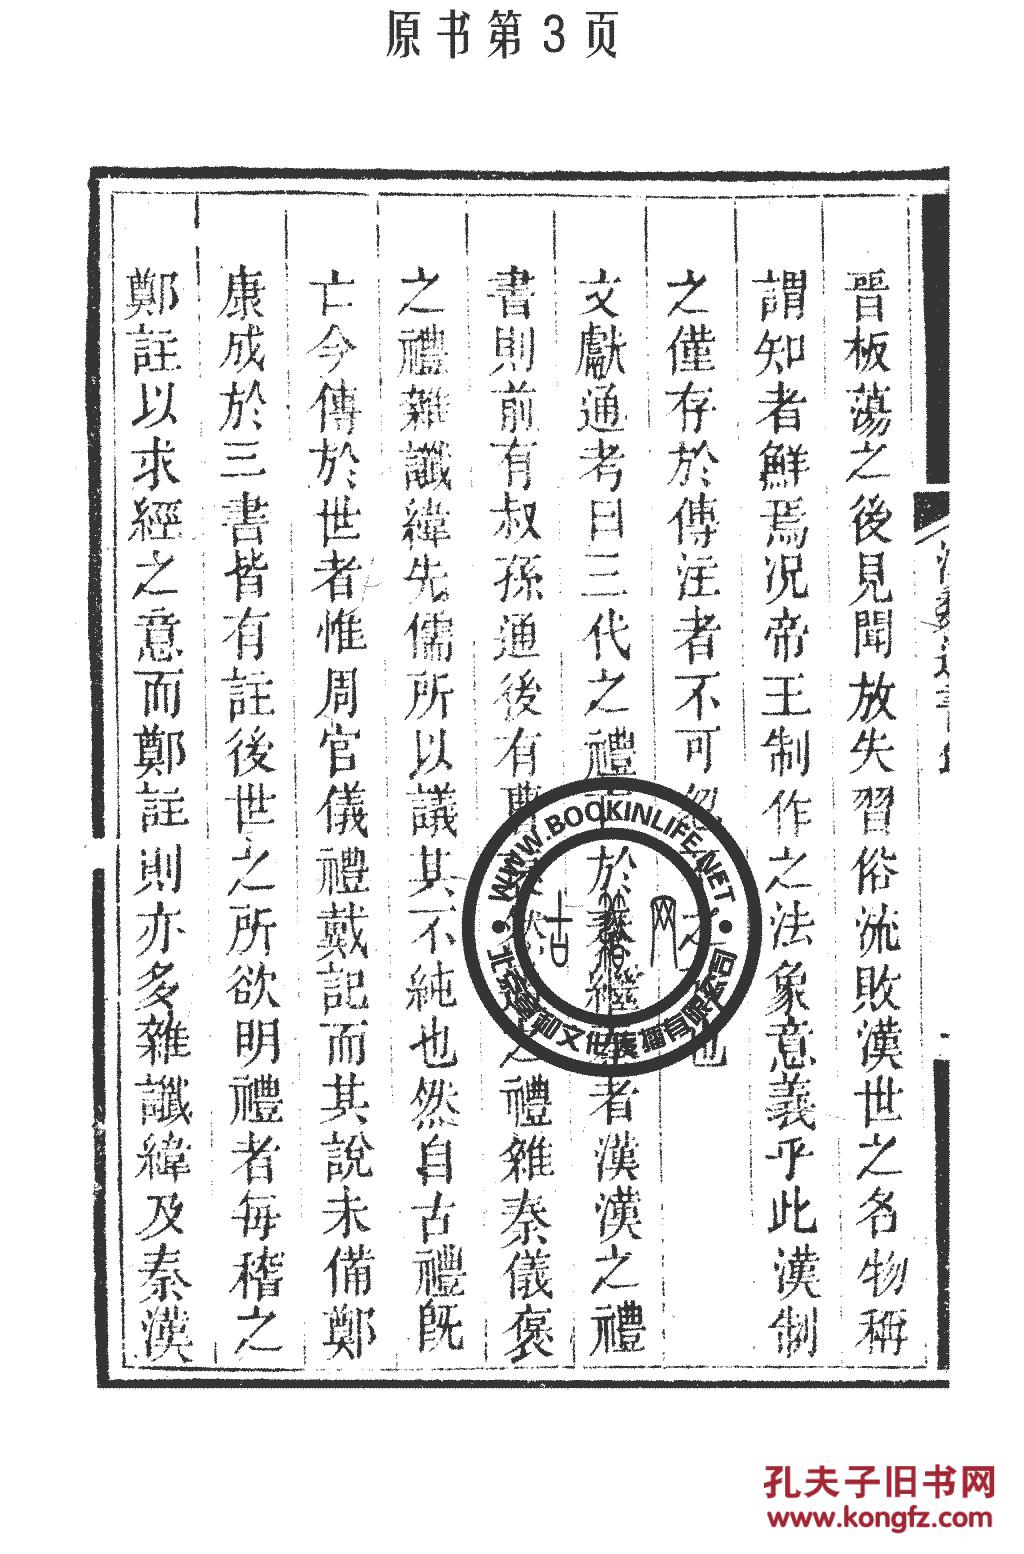 原书第3页
晋板蕩之後見聞放失習俗流敗漢世之名物稱
謂知者鮮焉况帝王制作之法象意義乎此漢制
之僅存於傳注者不可 之 也
文獻通考曰三代之禮 於秦繼 者漢漢之禮
書則前有叔孫通後有曹 之禮雜秦儀褒
之禮雜讖緯先儒所以議其不純也然自古禮旣
亡今傳於世者惟周官儀禮戴記而其說未備鄭
康成於三書皆有註後世之所欲明禮者每稽之
鄭註以求經之意而鄭註則亦多雜讖緯及秦漢
WWW.BOOKINLIFE.NET
古籍网
孔夫子旧书网
www.kongfz.com